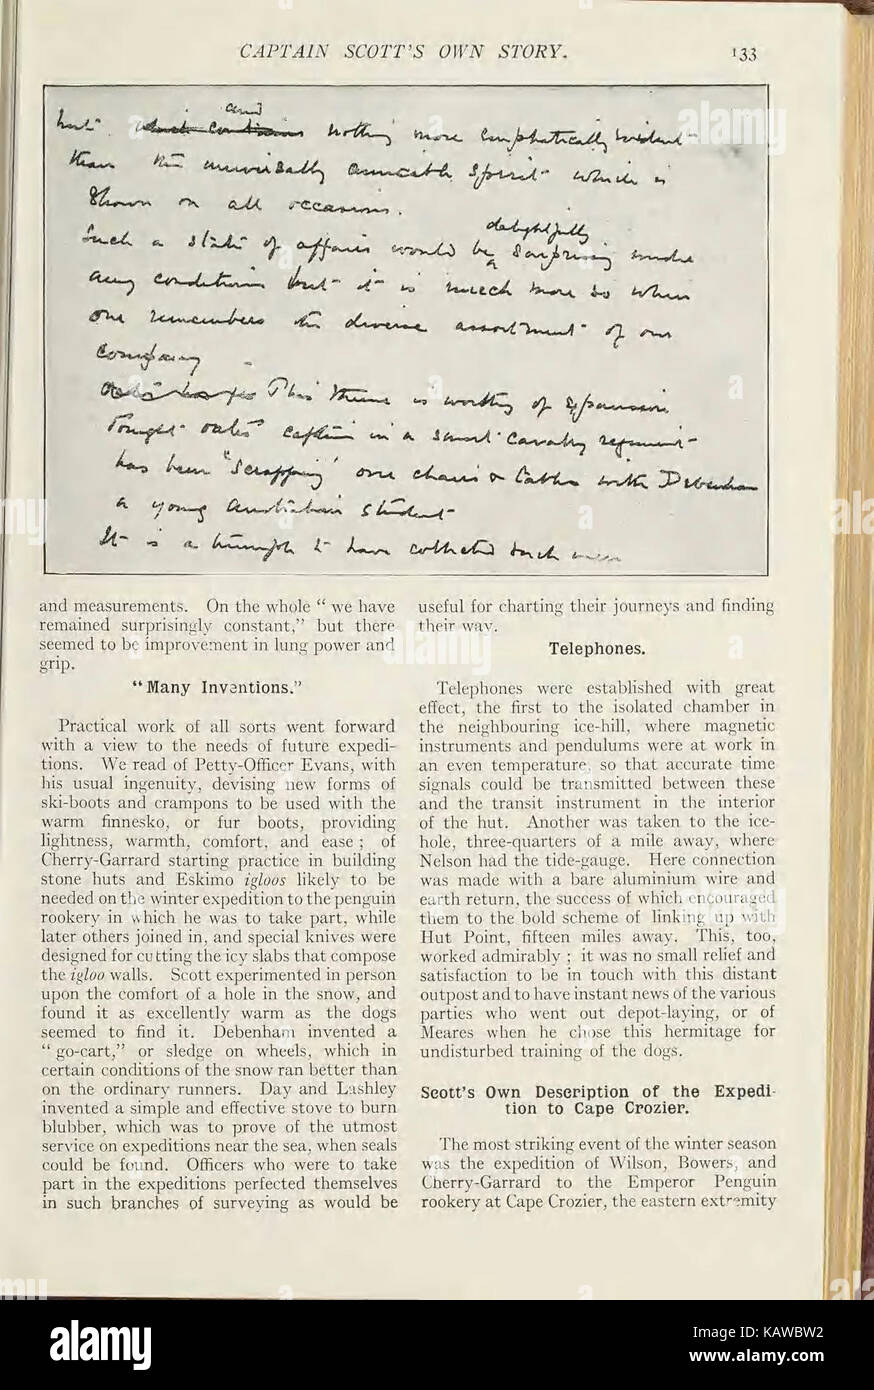 CAPTAIN SCOTT'S OWN STORY.
133
and
but which continues nothing more emphatically evident
than the universally amicable spirit which is
shown on all occasions.
delightfully
Such a state of affairs would be surprising under
any conditions but it is much more so when
one remembers the diverse assortment of our
company
This theme is worthy of expansion
Tonight Oates captain in a smart cavalry regiment
has been "scrapping" over chairs & tables with Debenham
a young Australian student
It is a triumph to have collected such men
and measurements. On the whole “ we have
remained surprisingly constant,” but there
seemed to be improvement in lung power and
grip.
“ Many Inventions.”
Practical work of all sorts went forward
with a view to the needs of future expedi-
tions. We read of Petty-Officer Evans, with
his usual ingenuity, devising new forms of
ski-boots and crampons to be used with the
warm finnesko, or fur boots, providing
lightness, warmth, comfort, and ease ; of
Cherry-Garrard starting practice in building
stone huts and Eskimo igloos likely to be
needed on the winter expedition to the penguin
rookery in which he was to take part, while
later others joined in, and special knives were
designed for cutting the icy slabs that compose
the igloo walls. Scott experimented in person
upon the comfort of a hole in the snow, and
found it as excellently warm as the dogs
seemed to find it. Debenham invented a
“ go-cart,” or sledge on wheels, which in
certain conditions of the snow ran better than
on the ordinary runners. Day and Lashley
invented a simple and effective stove to burn
blubber, which was to prove of the utmost
service on expeditions near the sea, when seals
could be found. Officers who were to take
part in the expeditions perfected themselves
in such branches of surveying as would be
useful for charting their journeys and finding
their way.
Telephones.
Telephones were established with great
effect, the first to the isolated chamber in
the neighbouring ice-hill, where magnetic
instruments and pendulums were at work in
an even temperature, so that accurate time
signals could be transmitted between these
and the transit instrument in the interior
of the hut. Another was taken to the ice-
hole, three-quarters of a mile away, where
Nelson had the tide-gauge. Here connection
was made with a bare aluminium wire and
earth return, the success of which encouraged
them to the bold scheme of linking up with
Hut Point, fifteen miles away. This, too,
worked admirably ; it was no small relief and
satisfaction to be in touch with this distant
outpost and to have instant news of the various
parties who went out depot-laying, or of
Meares when he chose this hermitage for
undisturbed training of the dogs.
Scott's Own Description of the Expedi-
tion to Cape Crozier.
The most striking event of the winter season
was the expedition of Wilson, Bowers, and
Cherry-Garrard to the Emperor Penguin
rookery at Cape Crozier, the eastern extremity
alamy
Image ID: KAWBW2
www.alamy.com